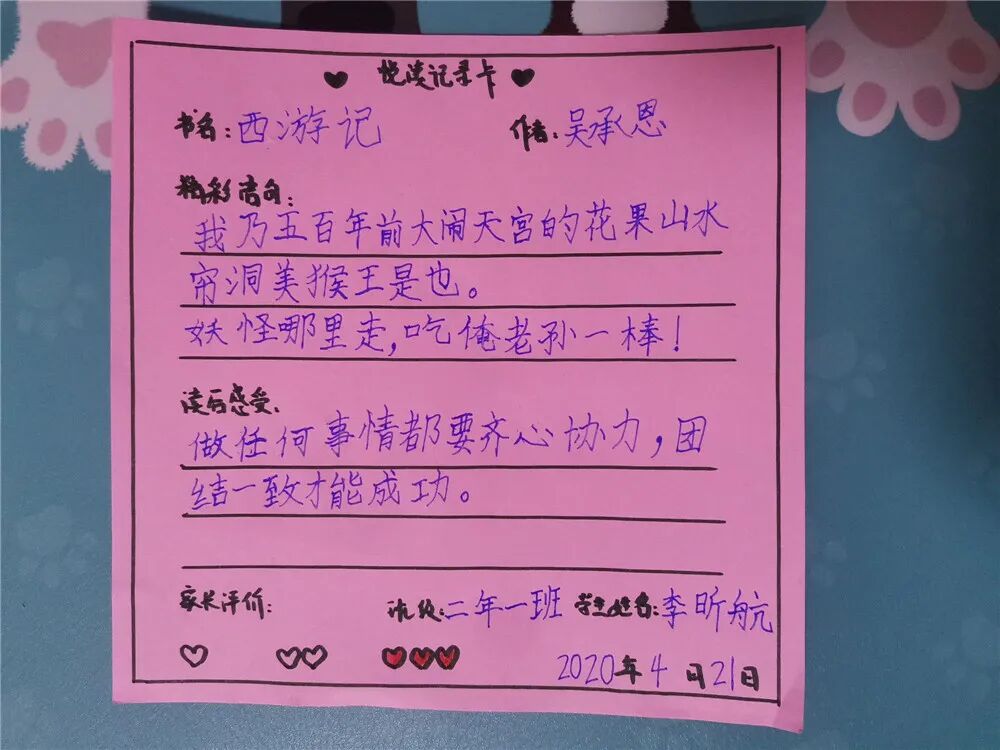 ♥ 悦读记录卡 ♥
书名:西游记 作者:吴承恩
精彩语句:
我乃五百年前大闹天宫的花果山水
帘洞美猴王是也。
妖怪哪里走,吃俺老孙一棒!
读后感受:
做任何事情都要齐心协力,团
结一致才能成功。
家长评价: 班级:二年一班 学生姓名:李昕航
2020年4月21日